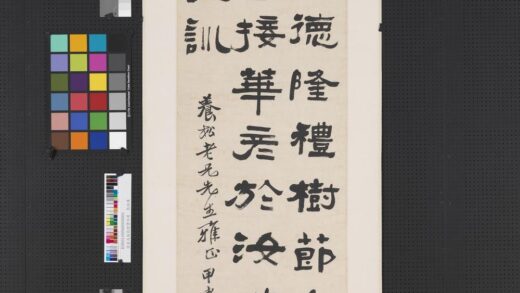 德隆禮樹節
接華彥於汝
訓
養松老兄先生雅正 甲